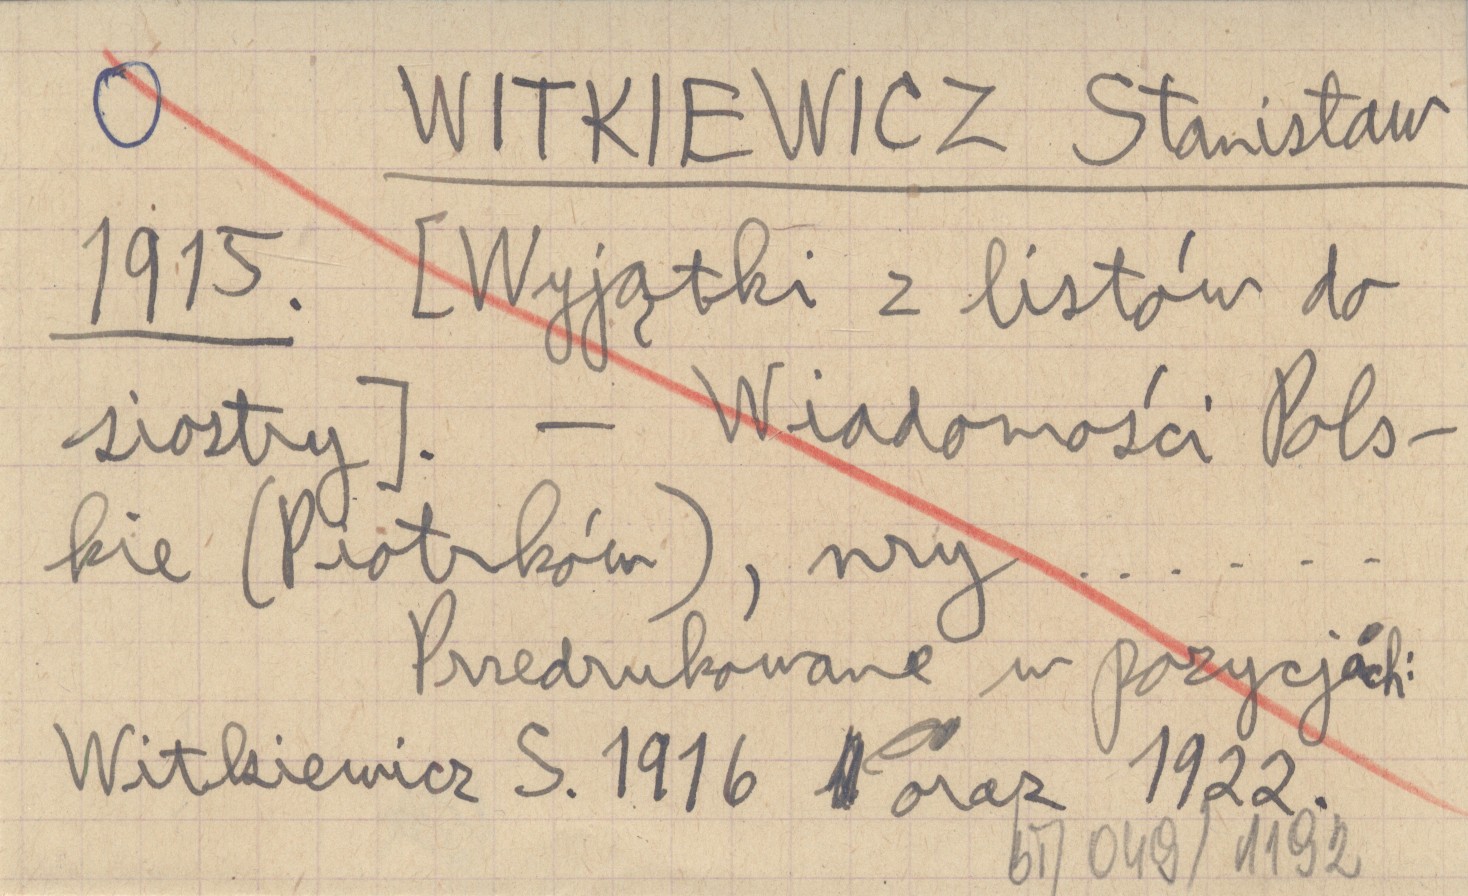 WITKIEWICZ Stanisław
1915. [Wyjątki z listów do
siostry]. — Wiadomości Pols-
kie (Piotrków), nry . . . . . . .
Przedrukowane w pozycjach:
Witkiewicz S. 1916 oraz 1922.
049/1192